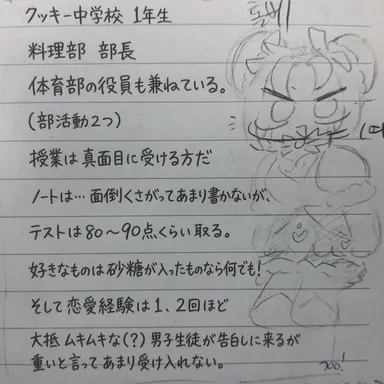 クッキー中学校 1年生
料理部 部長
体育部の役員も兼ねている。
(部活動2つ)
授業は真面目に受ける方だ
ノートは…面倒くさがってあまり書かないが、
テストは80〜90点くらい取る。
好きなものは砂糖が入ったものなら何でも!
そして恋愛経験は1、2回ほど
大抵ムキムキな(?)男子生徒が告白しに来るが
重いと言ってあまり受け入れない。